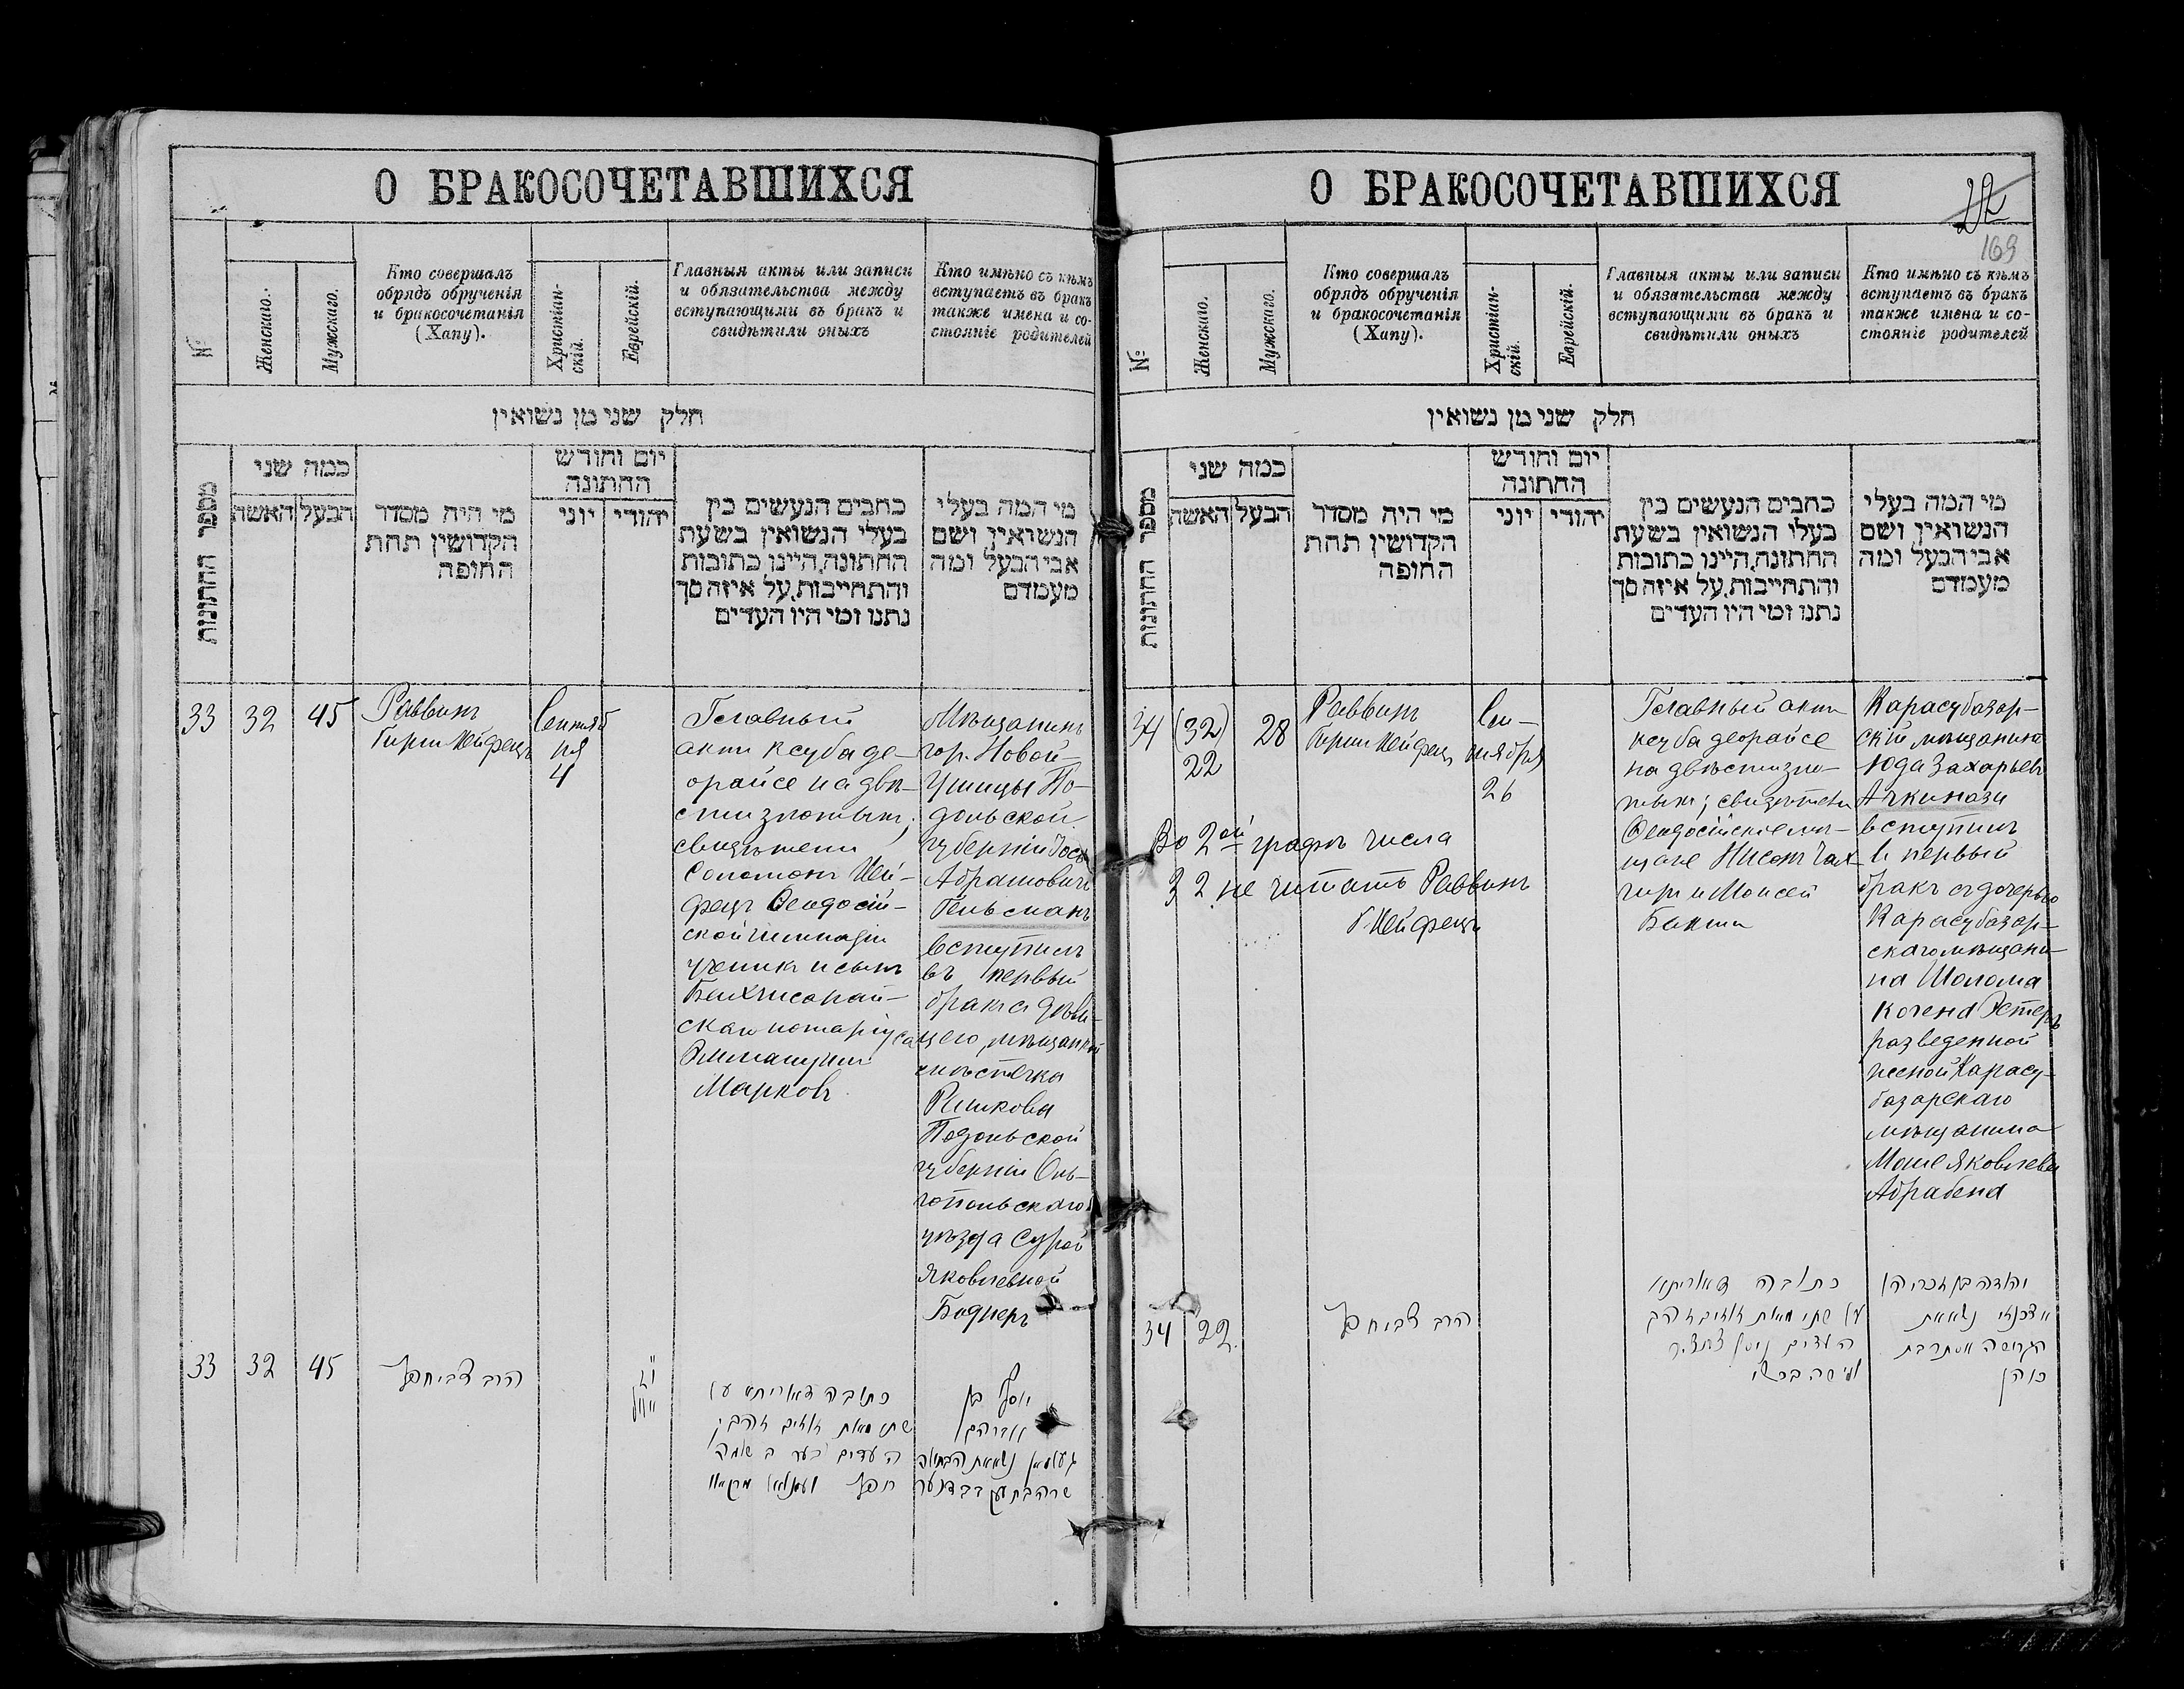 О БРАКОСОЧЕТАВШИХСЯ
№
Женскаго.
Мужскаго.
Кто совершалъ
обрядъ обрученія
и бракосочетанія
(Хапу).
Христіан-
скій.
Еврейскій.
Главныя акты или записи
и обязательства между
вступающими въ бракъ и
свидѣтили оныхъ
Кто имѣно съ кѣмъ
вступаетъ въ бракъ
также имена и со-
стояніе родителей
חלק שני מן נשואין
מספר החתונות
כמה שני
האשה
הבעל
מי היה מסדר
הקדושין תחת
החופה
יום וחודש
החתונה
יוני
יהודי
כתבים הנעשים בין
בעלי הנשואין בשעת
החתונה, היינו כתובות
והתחייבות, על איזה סך
נתנו ומי היו העדים
מי המה בעלי
הנשואין ושם
אבי הבעל ומה
מעמדם
33
32
45
Раввинъ
Гирш Хейфецъ
Сентяб
ря
4
Главный
актъ ксуба де-
орайсе на двѣ-
сти злотыхъ;
свидѣтели
Соломонъ Хей-
фецъ Ѳеодосій-
ской гимназіи
ученикъ и сынъ
Бахчисарай-
скаго нотаріуса
Эммануилъ
Марковъ
Мѣщанинъ
гор. Новой-
Ушицы По-
дольской
губерніи Іось
Абрамовичъ
Гельманъ
вступилъ
въ первый
бракъ съ дѣви-
цею, мѣщанкой
мѣстечка
Рашкова
Подольской
губерніи Оль-
гопольскаго
уѣзда Сурой
Яковлевной
Боднеръ
33
32
45
הרב צבי חפץ
כתובה דאורייתא על
שתי מאות זוזים
העדים
חפץ
יוסף בן
אברהם
О БРАКОСОЧЕТАВШИХСЯ
22
169
№
Женскаго.
Мужскаго.
Кто совершалъ
обрядъ обрученія
и бракосочетанія
(Хапу).
Христіан-
скій.
Еврейскій.
Главныя акты или записи
и обязательства между
вступающими въ бракъ и
свидѣтили оныхъ
Кто имѣно съ кѣмъ
вступаетъ въ бракъ
также имена и со-
стояніе родителей
חלק שני מן נשואין
מספר החתונות
כמה שני
האשה
הבעל
מי היה מסדר
הקדושין תחת
החופה
יום וחודש
החתונה
יוני
יהודי
כתבים הנעשים בין
בעלו הנשואין בשעת
החתונה, היינו כתובות
והתחייבות, על איזה סך
נתנו ומי היו העדים
מי המה בעלי
הנשואין ושם
אבי הבעל ומה
מעמדם
34
(32)
22
28
Раввинъ
Гирш Хейфец
Сен-
тября
26
Во 2ой графѣ числа
32 не читать Раввинъ
Г. Хейфецъ
Главный актъ
ксуба деорайсе
на двѣсти зло-
тыхъ; свидѣтели
Ѳеодосійскіе мѣ-
щане Нисонъ
и Моисей
Бакши
Карасубазар-
скій мѣщанинъ
Юда Захарьевъ
Ачкинази
вступилъ
въ первый
бракъ съ дочерью
Карасубазар-
скаго мѣщани-
на Шолома
Когена Эстеръ
разведенной
женой Карасу-
базарскаго
мѣщанина
Моше Яковлева
Абрабена
34
22.
הרב צבי חפץ
כתובה דאורייתא
על שתי מאות זוזים
העדים ניסן
משה בכשי
יהודה בן זכריהו
אשכנזי נשא את
הגרושה אסתר בת
כוהן